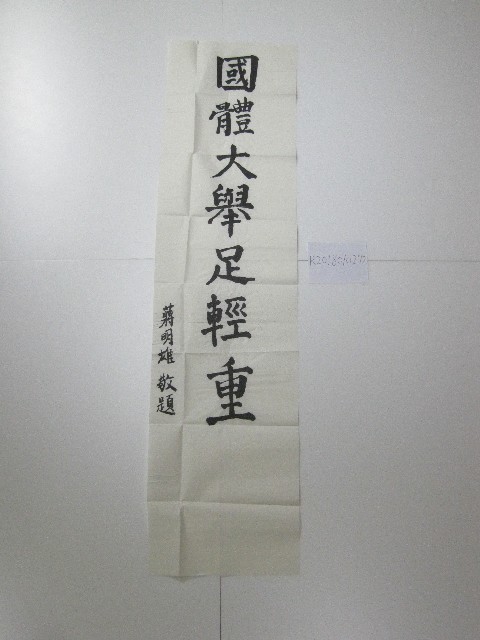 國體大舉足輕重
蔣明雄 敬題